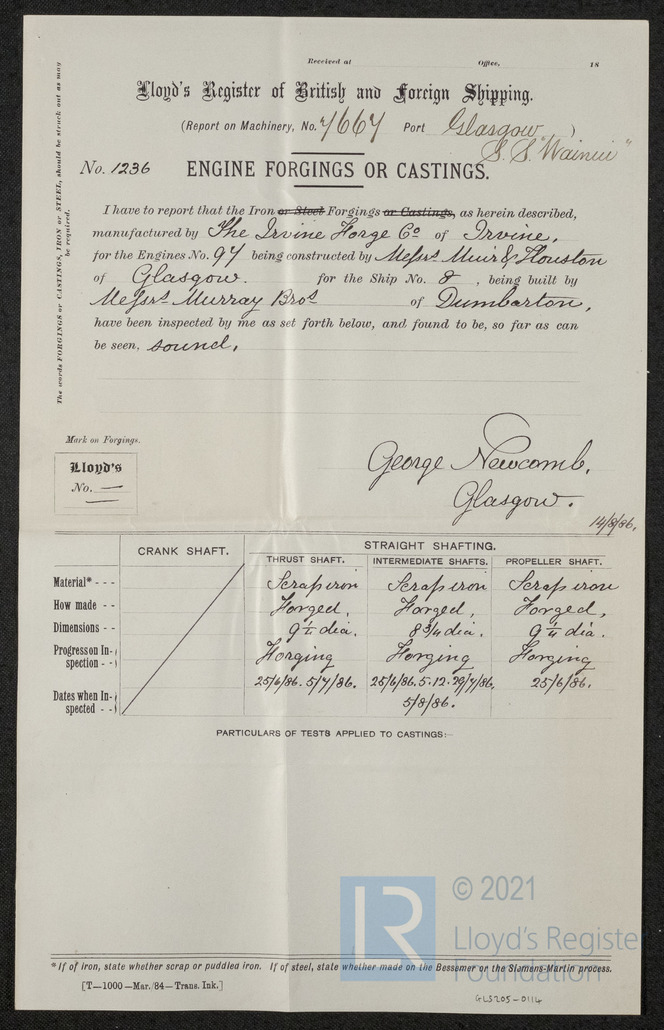 Received at Office, 18
Lloyd's Register of British and Foreign Shipping.
(Report on Machinery, No. 7667 Port Glasgow)
S.S. "Wainui"
No. 1236 ENGINE FORGINGS OR CASTINGS.
The words FORGINGS or CASTINGS, IRON or STEEL, should be struck out as may be required.
I have to report that the Iron or Steel Forgings or Castings, as herein described,
manufactured by The Irvine Forge Co of Irvine,
for the Engines No. 97 being constructed by Messrs Muir & Houston
of Glasgow. for the Ship No. 8, being built by
Messrs Murray Bros of Dumbarton,
have been inspected by me as set forth below, and found to be, so far as can
be seen, sound.
Mark on Forgings.
Lloyd's
No. —
George Newcomb.
Glasgow.
14/8/86.
CRANK SHAFT. STRAIGHT SHAFTING.
THRUST SHAFT. INTERMEDIATE SHAFTS. PROPELLER SHAFT.
Material* - - - Scrap iron Scrap iron Scrap iron
How made - - Forged, Forged, Forged,
Dimensions - - dia. 8 3/4 dia. dia.
Progress on Inspection - - Forging Forging Forging
Dates when Inspected - - 25/6/86. 5/7/86. 25/6/86. 5. 12. 29/7/86. 25/6/86.
5/8/86.
PARTICULARS OF TESTS APPLIED TO CASTINGS:—
© 2021
LR Lloyd's Register
Foundation
*If of iron, state whether scrap or puddled iron. If of steel, state whether made on the Bessemer or the Siemens-Martin process.
[T—1000—Mar./84—Trans. Ink.]
GLS205-0114